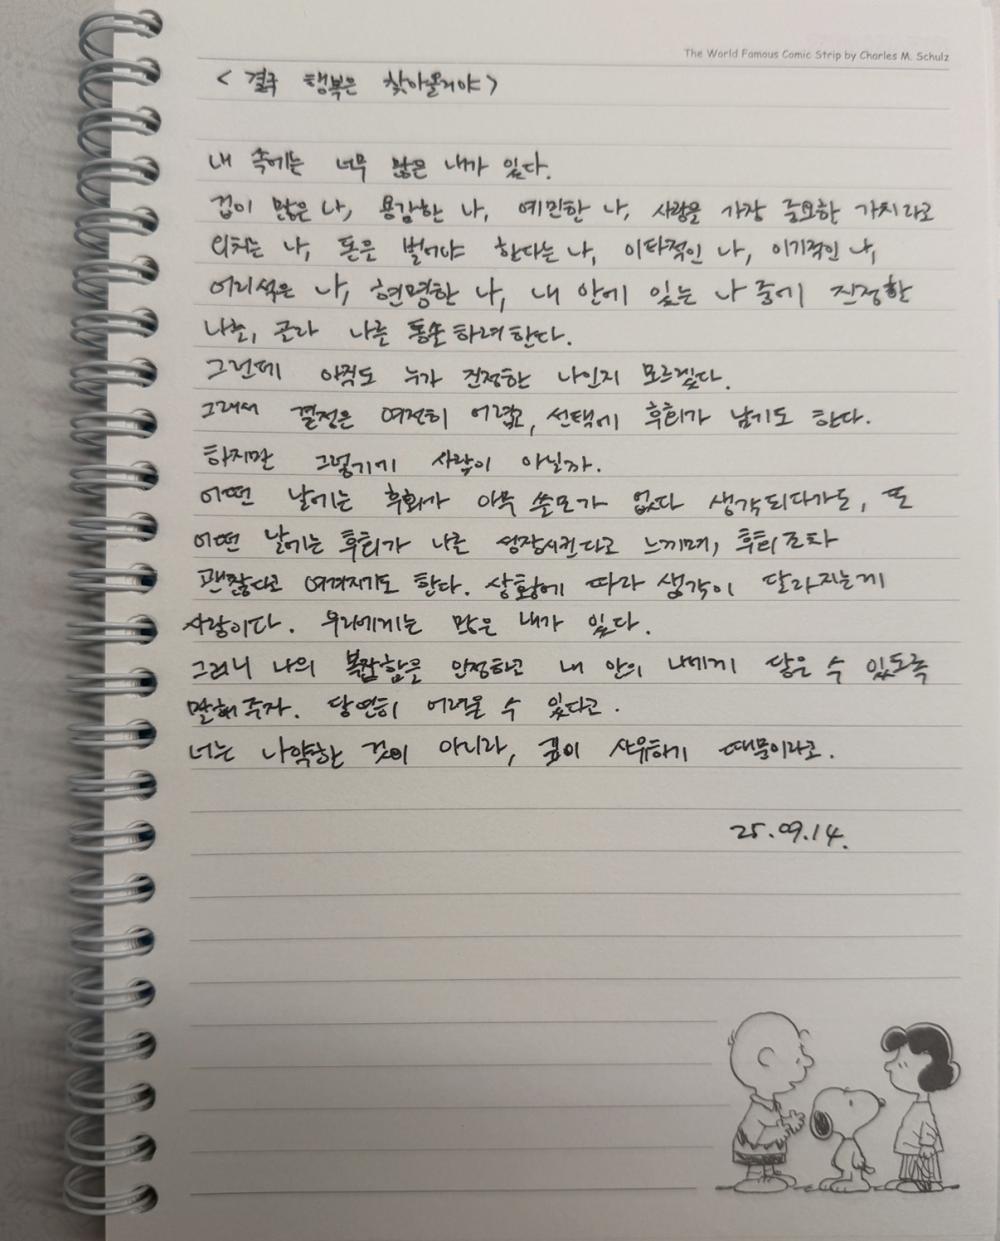 The World Famous Comic Strip by Charles M. Schulz
< 결국 행복은 찾아올거야 >
내 속에는 너무 많은 내가 있다.
겁이 많은 나, 용감한 나, 예민한 나, 사랑을 가장 중요한 가치라고
외치는 나, 돈은 벌어야 한다는 나, 이타적인 나, 이기적인 나,
어리석은 나, 현명한 나, 내 안에 있는 나 중에 진정한
나로, 골라 나를 통솔하려 한다.
그런데 아직도 누가 진정한 나인지 모르겠다.
그래서 결정은 여전히 어렵고, 선택에 후회가 남기도 한다.
하지만 그렇기에 사람이 아닐까.
어떤 날에는 후회가 아무 쓸모가 없다 생각되다가도, 또
어떤 날에는 후회가 나를 성장시킨다고 느끼며, 후회조차
괜찮다고 여겨지기도 한다. 상황에 따라 생각이 달라지는게
사람이다. 우리에게는 많은 내가 있다.
그러니 나의 복잡함을 인정하고 내 안의 나에게 닿을 수 있도록
말해주자. 당연히 어려울 수 있다고.
너는 나약한 것이 아니라, 깊이 사유하기 때문이라고.
25.09.14.